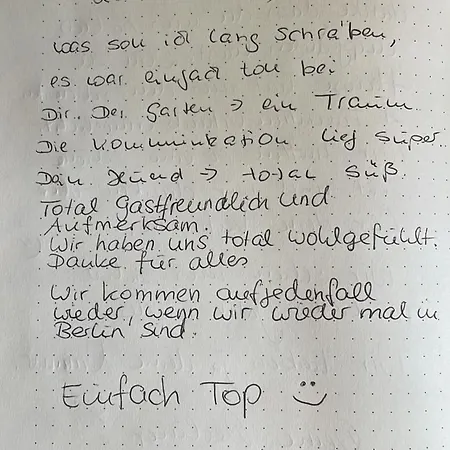 was soll ich lang schreiben,
es war einfach toll bei
Dir. Der Garten → ein Traum
Die Kommunikation lief super.
Dein Hund → total süß.
Total Gastfreundlich und
Aufmerksam.
Wir haben uns total wohlgefühlt.
Danke für alles
Wir kommen aufjedenfall
wieder, wenn wir wieder mal in
Berlin sind.
Einfach Top ☺